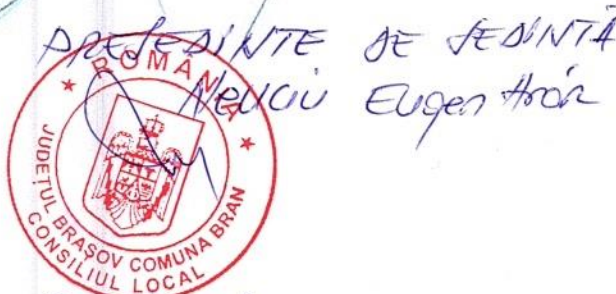 PREȘEDINTE DE ȘEDINȚĂ
Eugen
ROMÂNIA
JUDEȚUL BRAȘOV COMUNA BRAN
CONSILIUL LOCAL